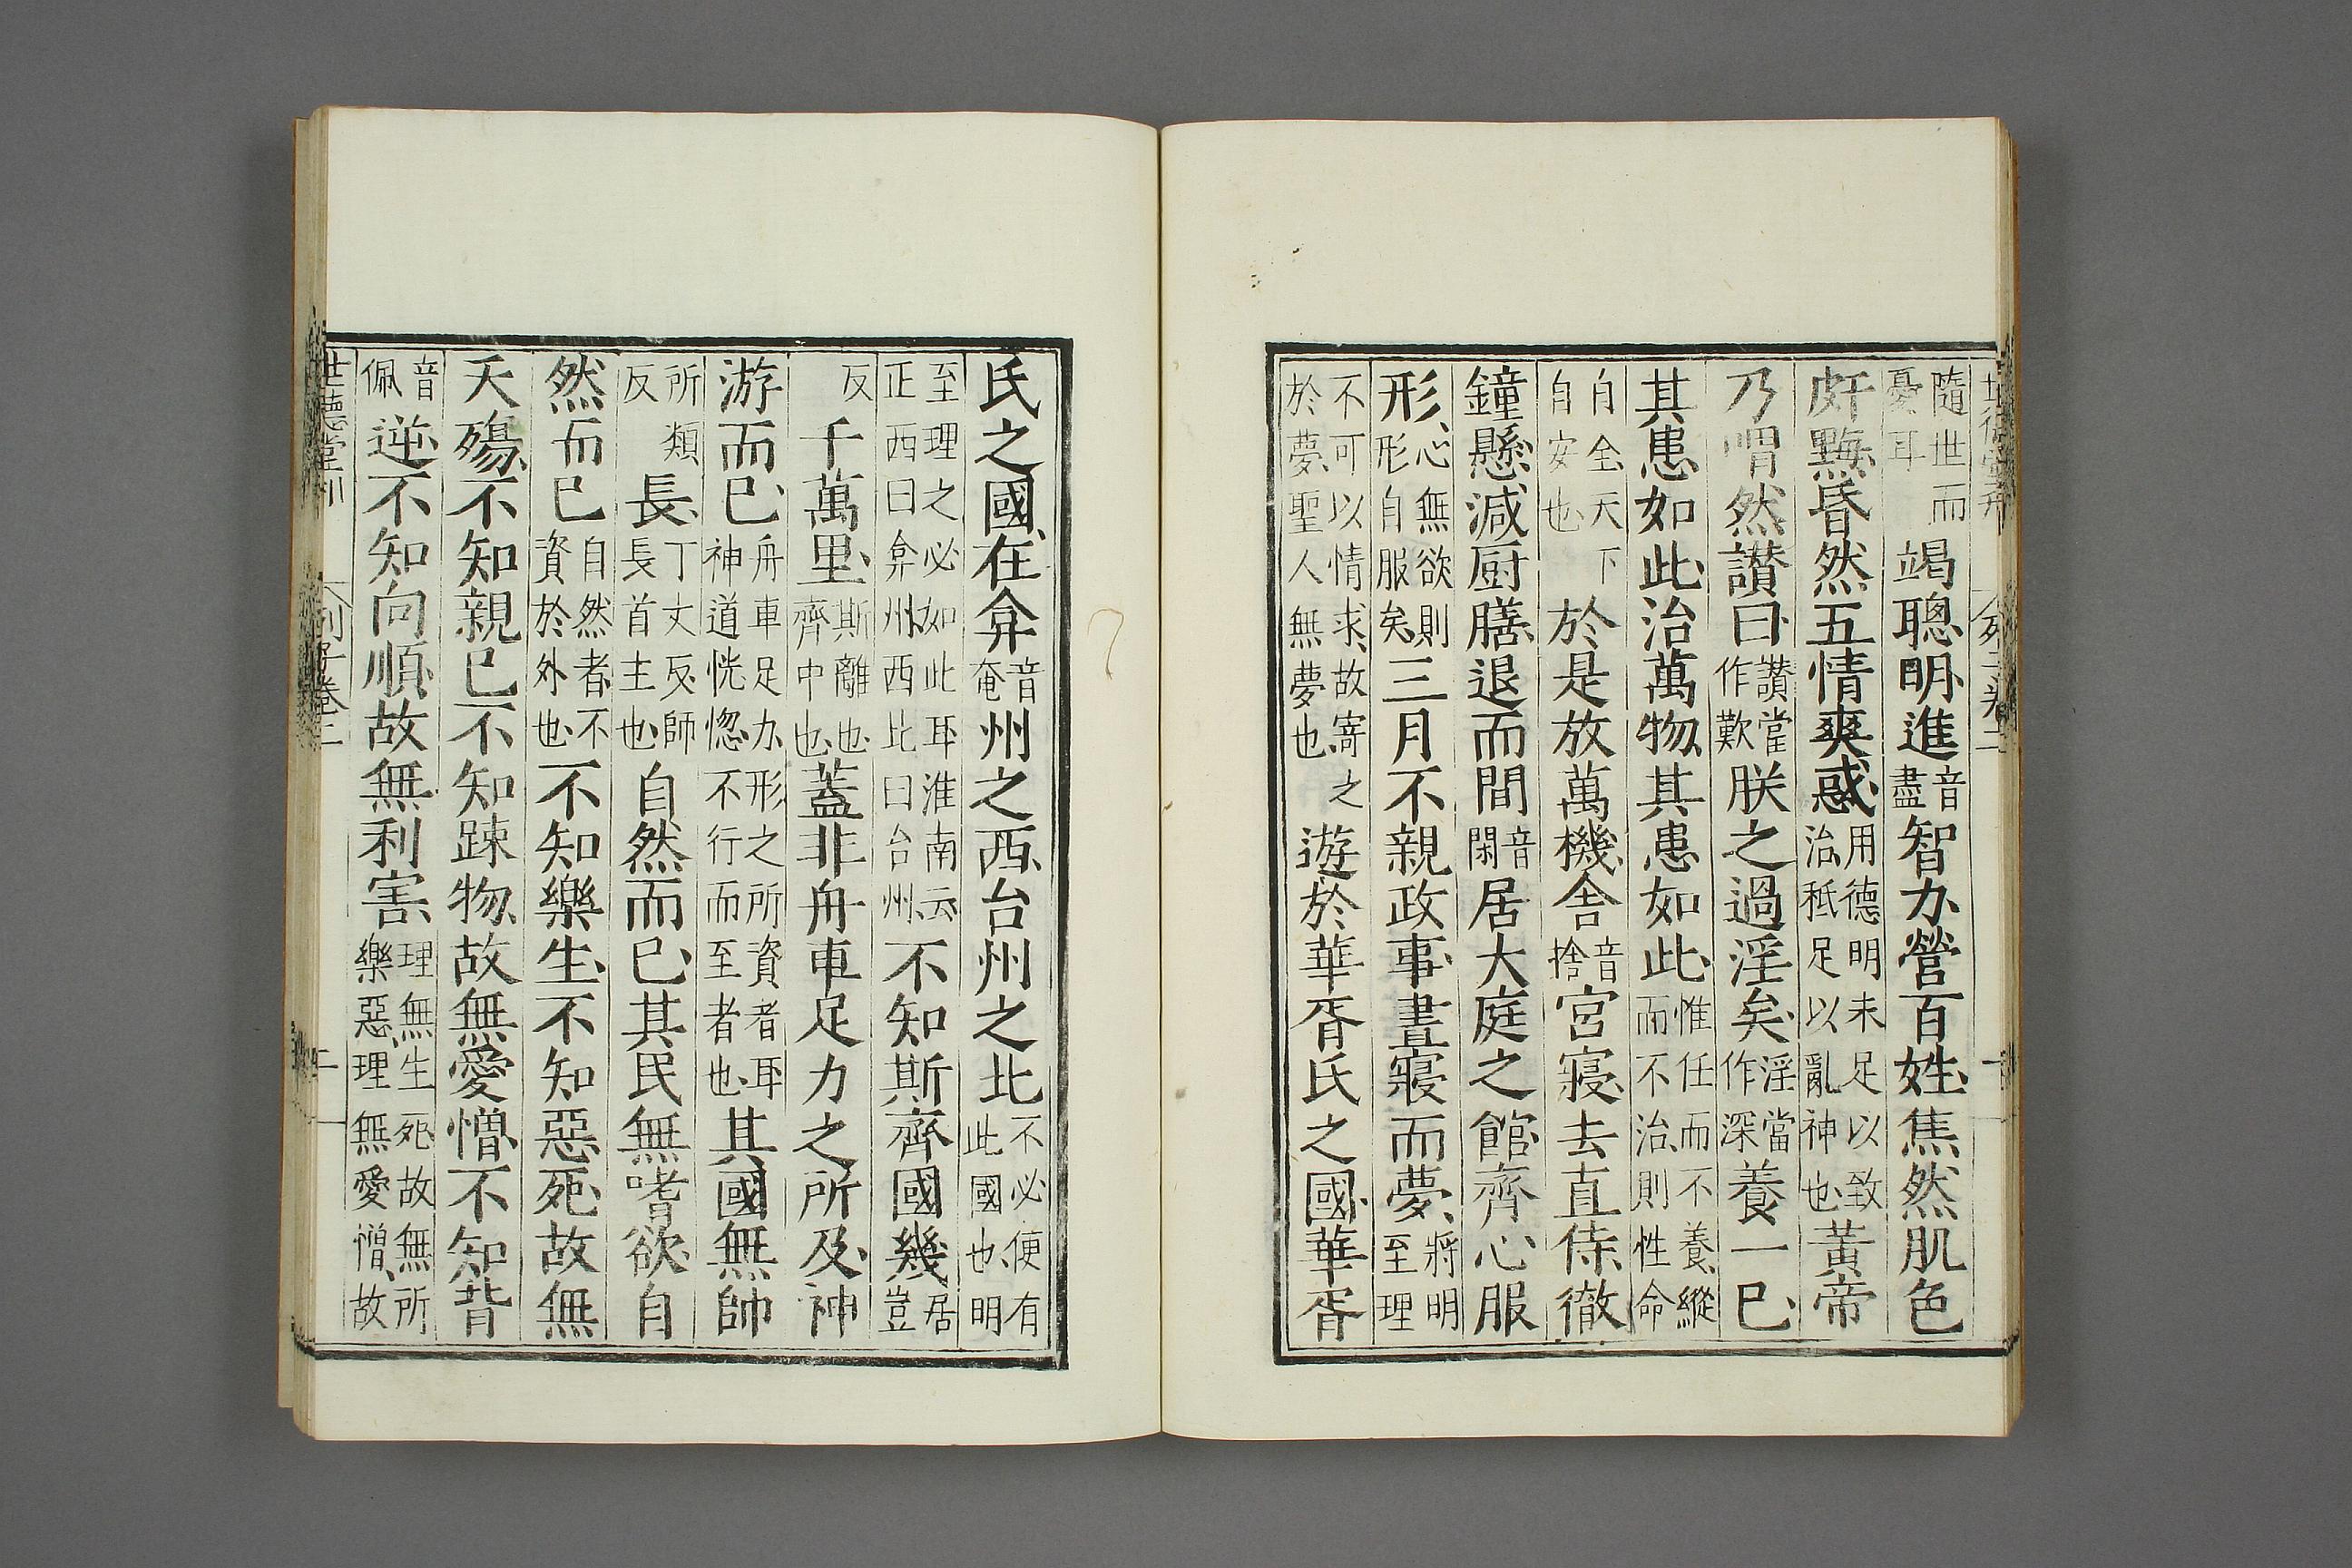 世德堂刊 列子卷二 一
隨世而憂耳竭聰明進音盡智力營百姓焦然肌色
皯黣昏然五情爽惑用德明未足以致治秪足以亂神也黃帝
乃喟然讚曰讚當作歎朕之過淫矣淫當作深養一已
其患如此治萬物其患如此惟任而不養縱而不治則性命
自全天下自安也於是放萬機舍音捨宮寢去直侍徹
鐘懸減厨膳退而間音閑居大庭之館齊心服
形心無欲則形自服矣三月不親政事晝寢而夢將明至理
不可以情求故寄之於夢聖人無夢也遊於華胥氏之國華胥
氏之國在弇音奄州之西台州之北不必便有此國也明
至理之必如此耳淮南云正西曰弇州西北曰台州不知斯齊國幾居豈
反千萬里斯離也齊中也蓋非舟車足力之所及神
游而已舟車足力形之所資者耳神道恍惚不行而至者也其國無帥
所類反長丁丈反師長首主也自然而已其民無嗜欲自
然而已自然者不資於外也不知樂生不知惡死故無
夭殤不知親已不知踈物故無愛憎不知背
音佩逆不知向順故無利害理無生死故無所樂惡理無愛憎故
世德堂刊 列子卷二 二